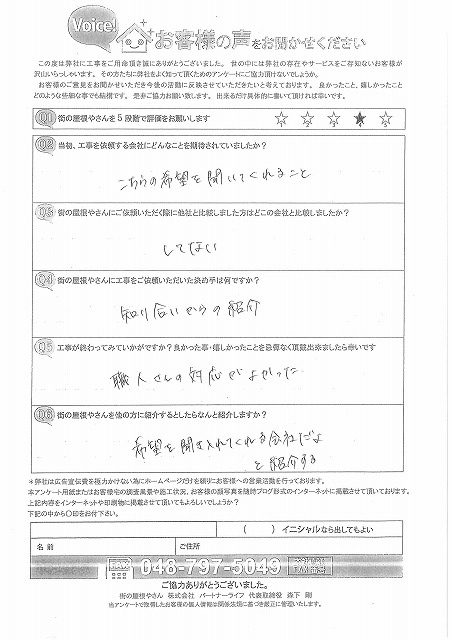 Voice!
お客様の声をお聞かせください
この度は弊社に工事をご用命頂き誠にありがとうございました。世の中には弊社の存在やサービスをご存知ないお客様が
沢山いらっしゃいます。その方たちに弊社をよく知って頂くためのアンケートにご協力頂けないでしょうか。
お客様のご意見をお聞かせいただき今後の活動に反映させていただきたいと考えております。良かったこと、嬉しかったこと
どのような些細な事でも結構です。是非ご協力お願い致します。出来るだけ具体的に書いて頂ければ幸いです。
Q1 街の屋根やさんを5段階で評価をお願いします ☆1 ☆2 ☆3 ★4 ☆5
Q2 当初、工事を依頼する会社にどんなことを期待されていましたか?
こちらの希望を聞いてくれること
Q3 街の屋根やさんにご依頼いただく際に他社と比較しました方はどこの会社と比較しましたか?
してない
Q4 街の屋根やさんに工事をご依頼いただいた決め手は何ですか?
知り合いからの紹介
Q5 工事が終わってみていかがですか?良かった事・嬉しかったことを忌憚なく頂戴出来ましたら幸いです
職人さんの対応がよかった
Q6 街の屋根やさんを他の方に紹介するとしたらなんと紹介しますか?
希望を聞き入れてくれる会社だよ
と紹介する
*弊社は広告宣伝費を極力かけない為にホームページだけを頼りにお客様への営業活動を行っております。
本アンケート用紙またはお客様宅の調査風景や施工状況、お客様の顔写真を随時ブログ形式のインターネットに掲載させて頂いております。
上記内容をインターネットや印刷物に掲載させて頂いてもよろしいでしょうか?
下記の中から〇印をお付下さい。
( ) イニシャルなら出してもよい
名前 ご住所
048-797-5043
ご協力ありがとうございました。
街の屋根やさん 株式会社 パートナーライフ 代表取締役 森下 剛
当アンケートで取得したお客様の個人情報は関係法規に基づき厳正に管理いたします。